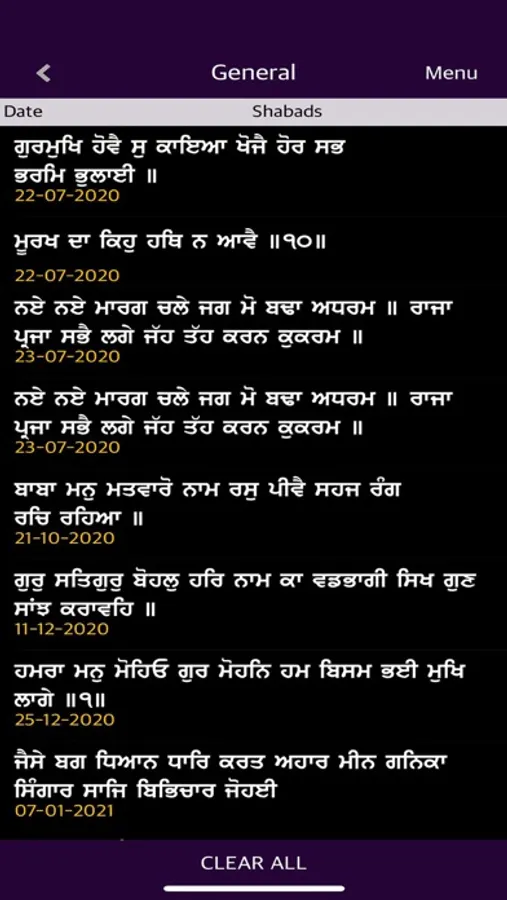 General
Menu
Date Shabads
ਗੁਰਮੁਖਿ ਹੋਵੈ ਸੁ ਕਾਇਆ ਖੋਜੈ ਹੋਰ ਸਭ
ਭਰਮਿ ਭੁਲਾਈ ॥
22-07-2020
ਮੂਰਖ ਦਾ ਕਿਹੁ ਹਥਿ ਨ ਆਵੈ ॥੧੦॥
22-07-2020
ਨਏ ਨਏ ਮਾਰਗ ਚਲੇ ਜਗ ਮੋ ਬਢਾ ਅਧਰਮ ॥ ਰਾਜਾ
ਪ੍ਰਜਾ ਸਭੈ ਲਗੇ ਜੱਹ ਤੱਹ ਕਰਨ ਕੁਕਰਮ ॥
23-07-2020
ਨਏ ਨਏ ਮਾਰਗ ਚਲੇ ਜਗ ਮੋ ਬਢਾ ਅਧਰਮ ॥ ਰਾਜਾ
ਪ੍ਰਜਾ ਸਭੈ ਲਗੇ ਜੱਹ ਤੱਹ ਕਰਨ ਕੁਕਰਮ ॥
23-07-2020
ਬਾਬਾ ਮਨੁ ਮਤਵਾਰੋ ਨਾਮ ਰਸੁ ਪੀਵੈ ਸਹਜ ਰੰਗ
ਰਚਿ ਰਹਿਆ ॥
21-10-2020
ਗੁਰੁ ਸਤਿਗੁਰੁ ਬੋਹਲੁ ਹਰਿ ਨਾਮ ਕਾ ਵਡਭਾਗੀ ਸਿਖ ਗੁਣ
ਸਾਂਝ ਕਰਾਵਹਿ ॥
11-12-2020
ਹਮਰਾ ਮਨੁ ਮੋਹਿਓ ਗੁਰ ਮੋਹਨਿ ਹਮ ਬਿਸਮ ਭਈ ਮੁਖਿ
ਲਾਗੇ ॥੧॥
25-12-2020
ਜੈਸੇ ਬਗ ਧਿਆਨ ਧਾਰਿ ਕਰਤ ਅਹਾਰ ਮੀਨ ਗਨਿਕਾ
ਸਿੰਗਾਰ ਸਾਜਿ ਬਿਭਿਚਾਰ ਜੋਹਈ
07-01-2021
CLEAR ALL